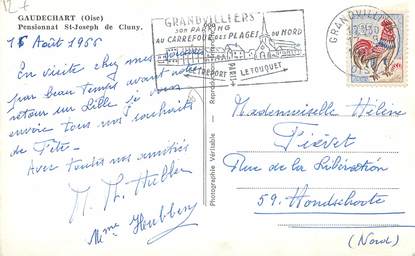 GAUDECHART (Oise)
Pensionnat St-Joseph de Cluny.
15 Août 1966
En visite chez mes
par beau temps avant notre
retour sur Lille je
envoie tous nos souhaits
de Fête.
Avec toutes nos amitiés
M. Th.
Mme
Photographie Véritable
GRANDVILLIERS
SON PARKING
AU CARREFOUR DES PLAGES DU NORD
LE TREPORT LE TOUQUET
PARIS
GRANDVILLIERS
Mademoiselle Hélène
Rue de la Libération
59. Hondschoote
(Nord)